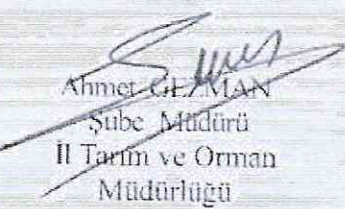 Ahmet GEZMAN
Şube Müdürü
İl Tarım ve Orman
Müdürlüğü